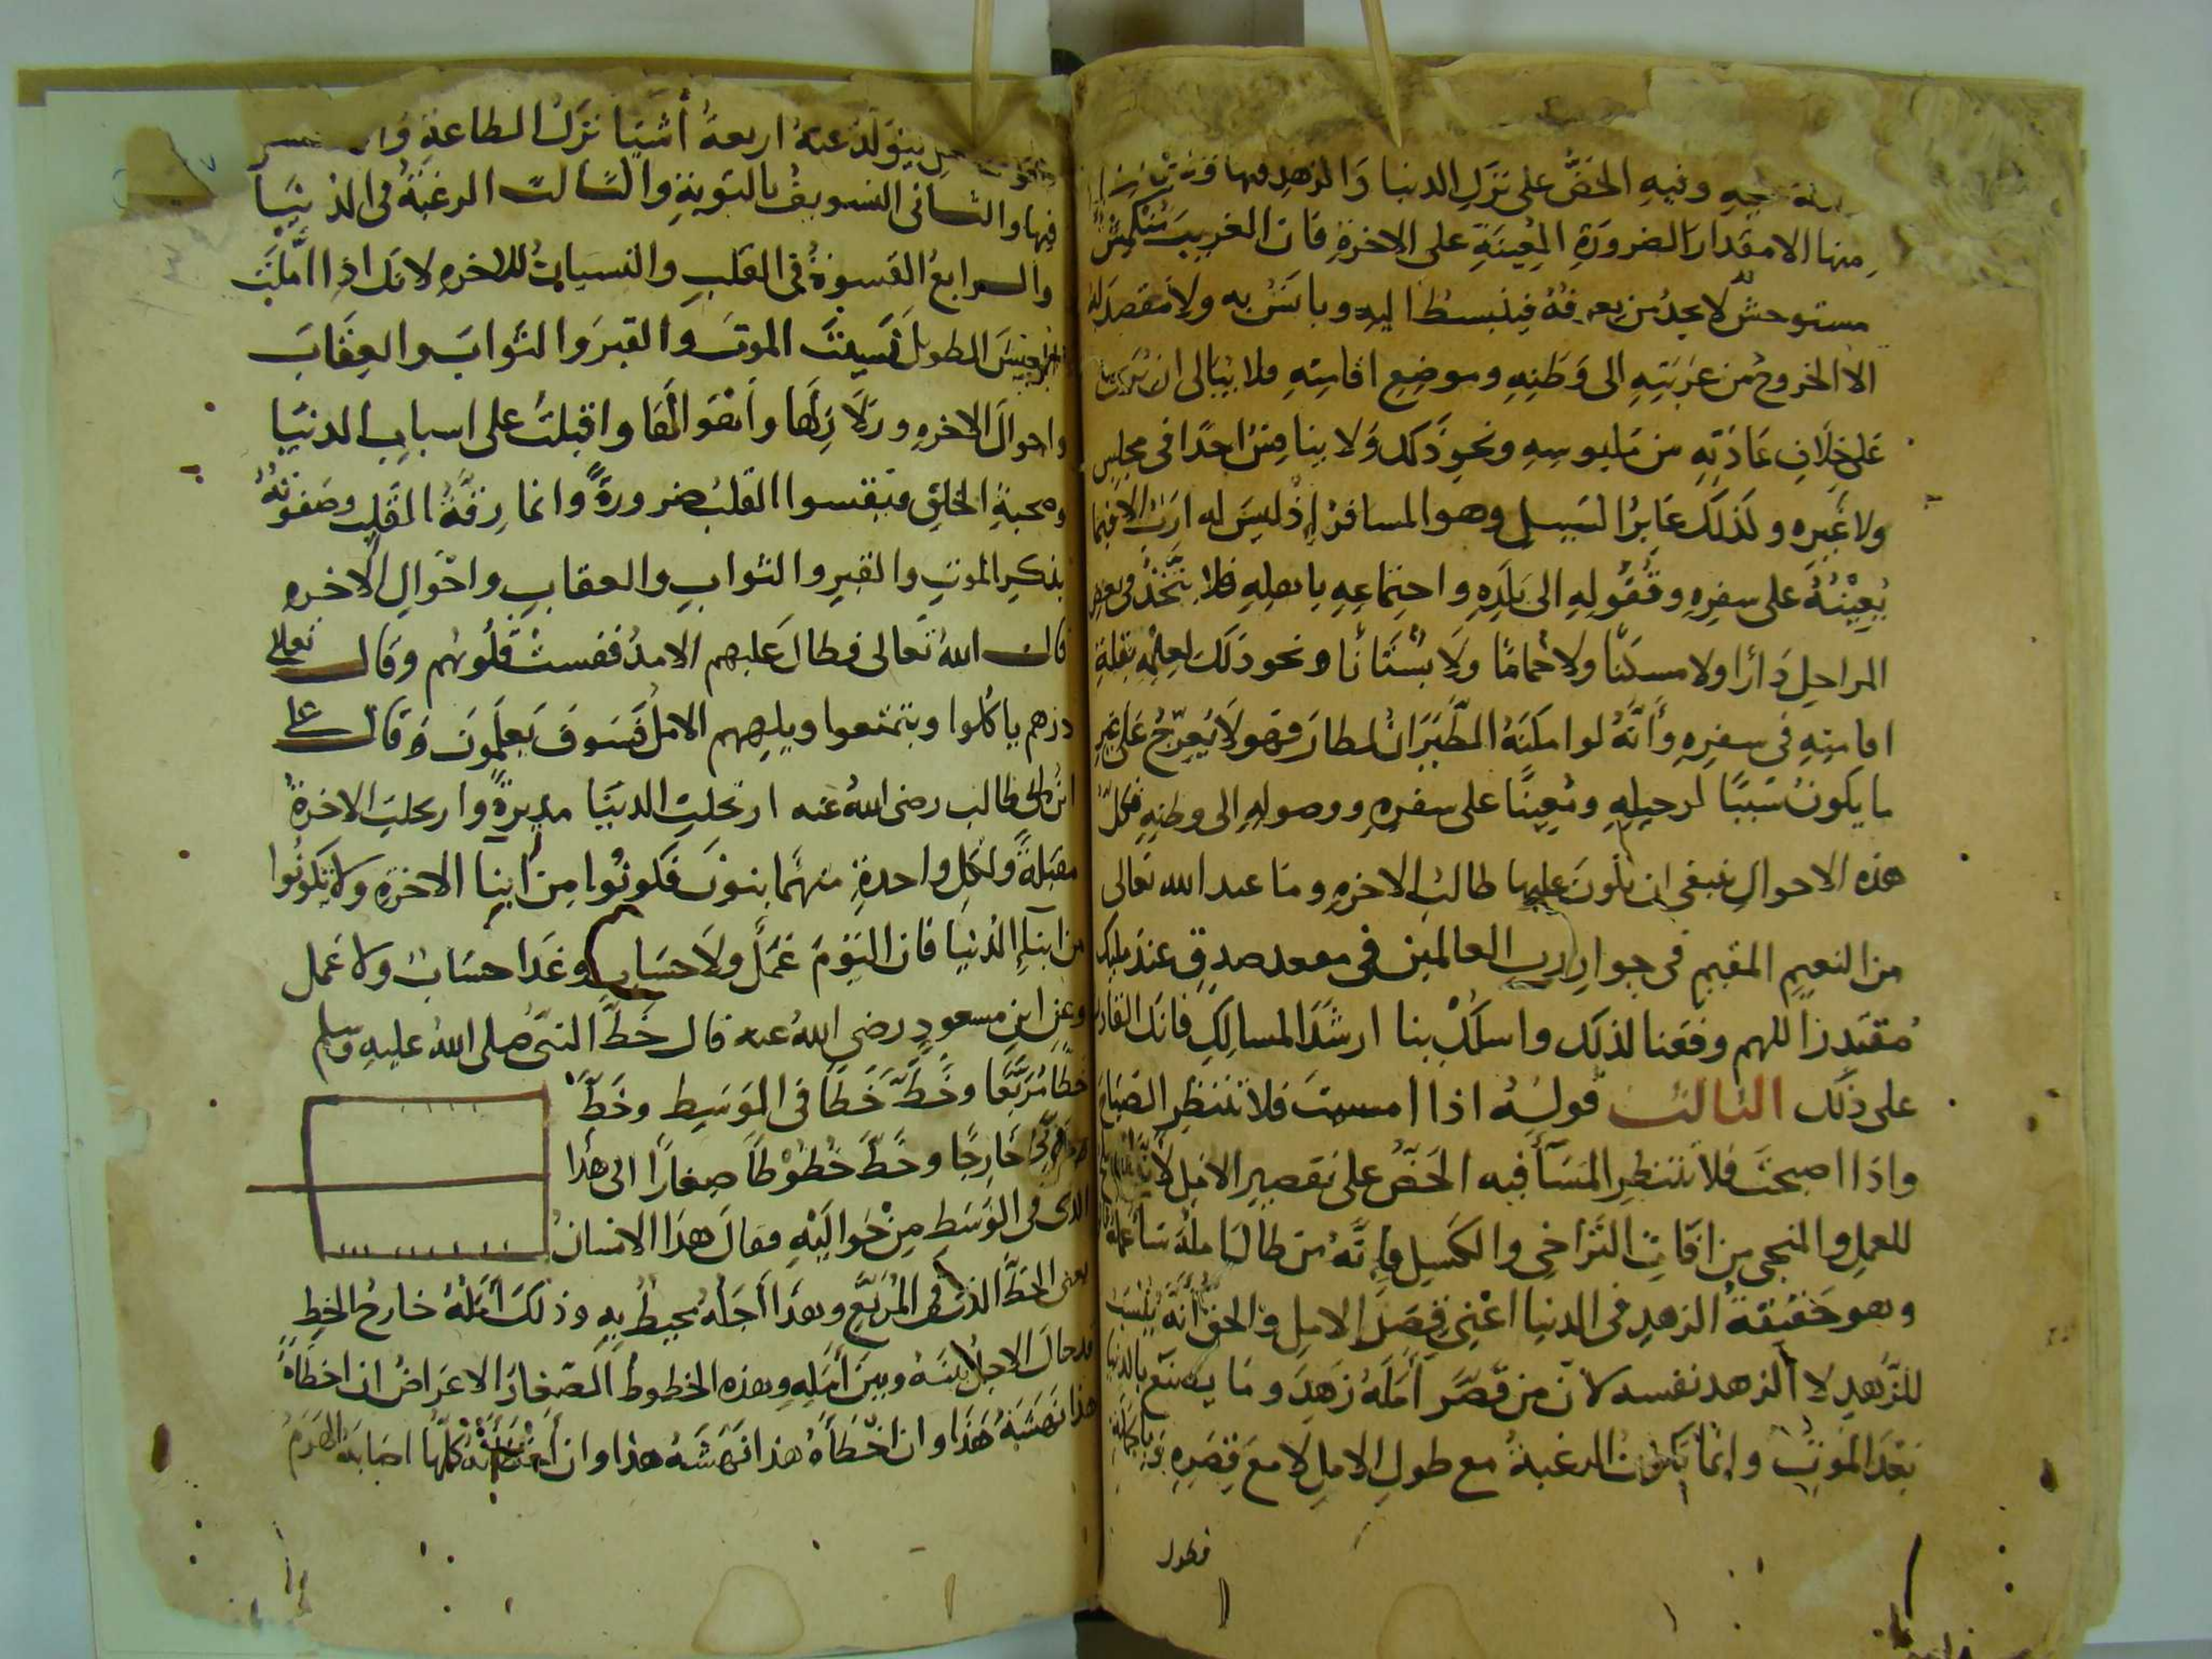 وفيه الحض على ترك الدنيا والزهد فيها
منها الا مقدار الضرورة المعينة على الاخرة فان الغريب
مستوحش لا يجد من يعرفه فينبسط اليه ويأنس به ولا مقصد له
الا الخروج من غربته الى وطنه وموضع اقامته فلا يبالى ان يرى
على خلاف عادته من ملبوسه ونحو ذلك ولا ينافس احدا فى مجلس
ولا غيره ولذلك عابر السبيل وهو المسافر إذ ليس له ارب الا فيما
يعينه على سفره وقفوله الى بلده واجتماعه باهله فلا يتخذ فى بعض
المراحل دارا ولا مسكنا ولا حماما ولا بستانا ونحو ذلك لعلمه بقلة
اقامته فى سفره وأنه لو امكنه الطيران لطار فهو لا يعرج على غير
ما يكون سببا لرحيله ومعينا على سفره ووصوله الى وطنه فكل
هذه الاحوال ينبغى ان يكون عليها طالب الاخره وما عند الله تعالى
من النعيم المقيم فى جوار رب العالمين فى مقعد صدق عند مليك
مقتدر اللهم وفقنا لذلك واسلك بنا ارشد المسالك فانك القادر
على ذلك الثالث قوله اذا امسيت فلا تنتظر الصباح
واذا اصبحت فلا تنتظر المسآ فيه الحض على تقصير الامل
للعمل والمنجى من افات التراخى والكسل فإنه من طال امله سآ عمله
وهو حقيقة الزهد فى الدنيا اعنى قصر الامل والحق أنه سبب
للزهد لا الزهد نفسه لان من قصر أمله زهد وما
بعد الموت وانما تكون الرغبة مع طول الامل لا مع قصره
فطول
يتولد عنه اربعة أشيا ترك الطاعة
فيها والثانى التسويف بالتوبة والثالث الرغبة فى الدنيا
والرابع القسوة فى القلب والنسيان للاخره لانك اذا املت
العيش الطويل نسيت الموت والقبر والثواب والعقاب
واحوال الاخره وزلازلها وأهوالها واقبلت على اسباب الدنيا
ومحبة الخلق فيقسوا القلب ضرورة وانما رقة القلب وصفوته
بذكر الموت والقبر والثواب والعقاب واحوال الاخره
قال الله تعالى فطال عليهم الامد فقست قلوبهم وقال تعالى
ذرهم ياكلوا ويتمتعوا ويلههم الامل فسوف يعلمون وقال على
ابن ابى طالب رضى الله عنه ارتحلت الدنيا مدبرة وارتحلت الاخرة
مقبلة ولكل واحدة منهما بنون فكونوا من ابنا الاخرة ولا تكونوا
من ابنآ الدنيا فان اليوم عمل ولا حساب وغدا حساب ولا عمل
وعن ابن مسعود رضى الله عنه قال خط النبى صلى الله عليه وسلم
خطا مربعا وخط خطا فى الوسط وخط
خارجا وخط خطوطا صغارا الى هذا
الذى فى الوسط من حواليه فقال هذا الانسان
يعنى الخط الذى فى المربع وهذا أجله محيط به وذلك أمله خارج الخط
قد حال الاجل بينه وبين أمله وهذه الخطوط الصغار الاعراض ان اخطاه
هذا نهشه هذا وان اخطأه هذا نهشه هذا وان كلها اصابه الهرم